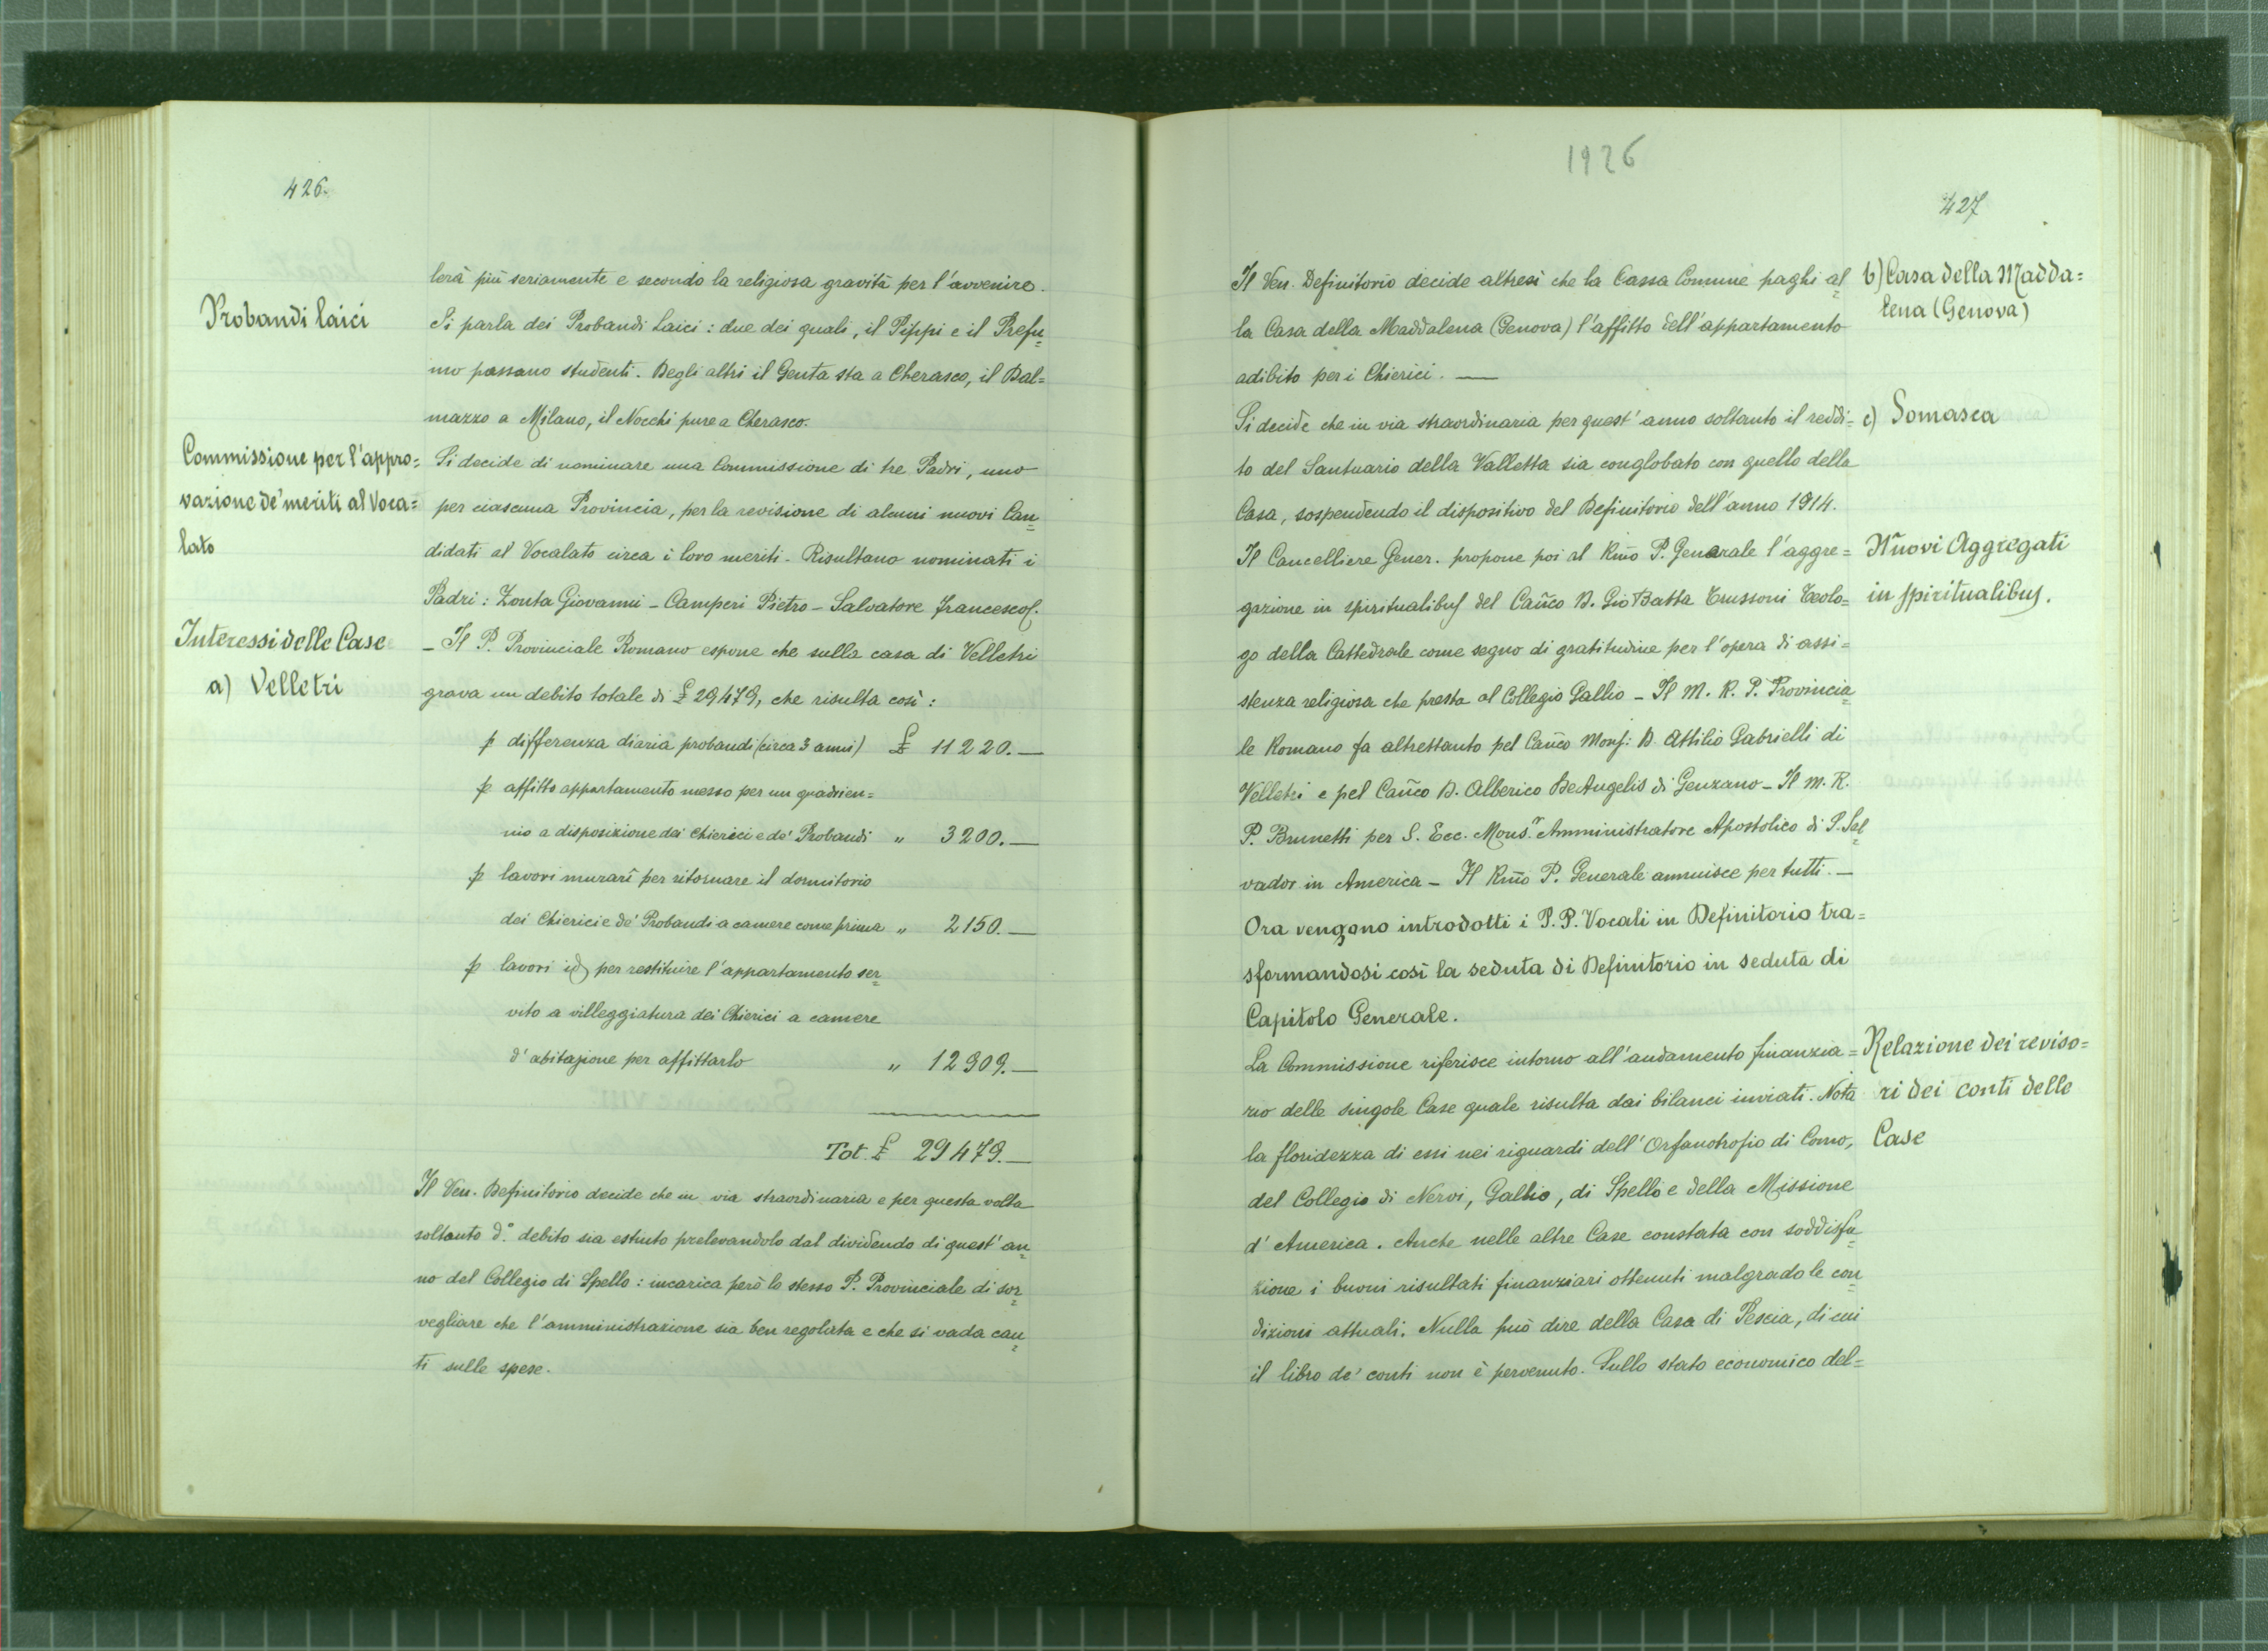 426.
lerà più seriamente e secondo la religiosa gravità per l'avvenire.
Probandi laici
Si parla dei Probandi Laici: due dei quali, il Pippi e il Prefu=
mo passano studenti. Degli altri il Genta sta a Cherasco, il Dal=
mazzo a Milano, il Nocchi pure a Cherasco.
Commissione per l'appro=
vazione de' meriti al Voca=
lato
Si decide di nominare una Commissione di tre Padri, uno
per ciascuna Provincia, per la revisione di alcuni nuovi Can=
didati al Vocalato circa i loro meriti. Risultano nominati i
Padri: Zonta Giovanni - Camperi Pietro - Salvatore Francesco.
Interessi delle Case
a) Velletri
- Il P. Provinciale Romano espone che sulla casa di Velletri
grava un debito totale di £ 29479, che risulta così:
p differenza diaria probandi (circa 3 anni) £ 11220.—
p affitto appartamento messo per un quadrien=
nio a disposizione dei Chierici e de' Probandi " 3200.—
p lavori murarî per ritornare il dormitorio
dei Chierici e de' Probandi a camere come prima " 2150.—
p lavori id per restituire l'appartamento ser=
vito a villeggiatura dei Chierici a camere
d'abitazione per affittarlo " 12909.—
Tot. £ 29479.—
Il Ven. Definitorio decide che in via straordinaria e per questa volta
soltanto d.° debito sia estinto prelevandolo dal dividendo di quest'an=
no del Collegio di Spello: incarica però lo stesso P. Provinciale di sor=
vegliare che l'amministrazione sia ben regolata e che si vada cau=
ti sulle spese.
1926
427
Il Ven. Definitorio decide altresì che la Cassa Comune paghi al=
la Casa della Maddalena (Genova) l'affitto dell'appartamento
adibito per i Chierici. —
b) Casa della Madda=
lena (Genova)
Si decide che in via straordinaria per quest'anno soltanto il reddi=
to del Santuario della Valletta sia conglobato con quello della
Casa, sospendendo il dispositivo del Definitorio dell'anno 1914.
c) Somasca
Il Cancelliere Gener. propone poi al Rm̃o P. Generale l'aggre=
gazione in spiritualibus del Cañco D. Gio Batta Trussoni Teolo=
go della Cattedrale come segno di gratitudine per l'opera di assi=
stenza religiosa che presta al Collegio Gallio - Il M. R. P. Provincia=
le Romano fa altrettanto pel Cañco Mons: D. Attilio Gabrielli di
Velletri e pel Cañco D. Alberico De Angelis di Genzano - Il M. R.
P. Brunetti per S. Ecc. Mons.r Amministratore Apostolico di S. Sal=
vador in America - Il Rm̃o P. Generale annuisce per tutti. —
Nuovi Aggregati
in spiritualibus.
Ora vengono introdotti i P.P. Vocali in Definitorio tra=
sformandosi così la seduta di Definitorio in seduta di
Capitolo Generale.
La Commissione riferisce intorno all'andamento finanzia=
rio delle singole Case quale risulta dai bilanci inviati. Nota
la floridezza di essi nei riguardi dell'Orfanotrofio di Como,
del Collegio di Nervi, Gallio, di Spello e della Missione
d'America. Anche nelle altre Case constata con soddisfa=
zione i buoni risultati finanziari ottenuti malgrado le con=
dizioni attuali. Nulla può dire della Casa di Pescia, di cui
il libro de' conti non è pervenuto. Sullo stato economico del=
Relazione dei reviso=
ri dei conti delle
Case